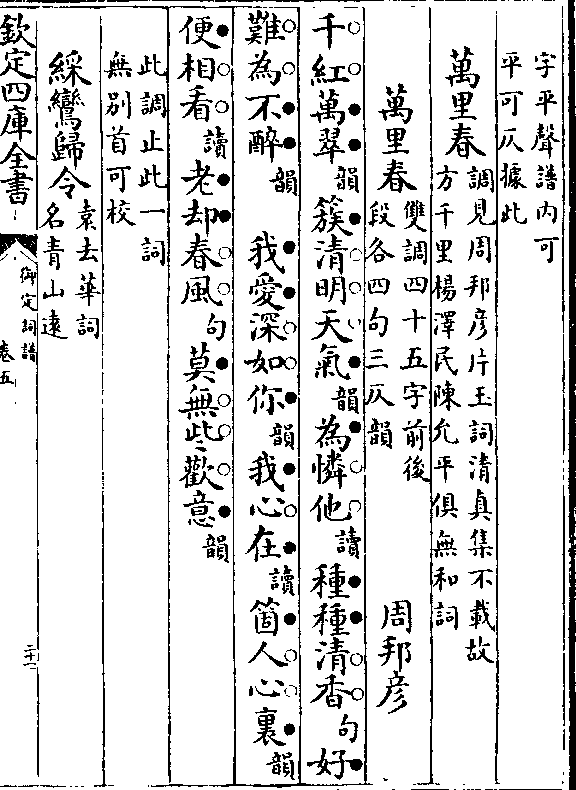 字平聲譜內可
平可仄據此
萬里春
調見周邦彥片玉詞清真集不載故
方千里楊澤民陳允平俱無和詞
萬里春
雙調四十五字前後
段各四句三仄韻
周邦彥
千紅萬翠韻簇清明天氣韻為憐他讀種種清香句好
難為不醉韻　我愛深如你韻我心在讀箇人心裏韻
便相看讀老却春風句莫無些歡意韻
此調止此一詞
無別首可校
綵鸞歸令
袁去華詞
名青山遠
欽定四庫全書
御定詞譜
卷五
二十二